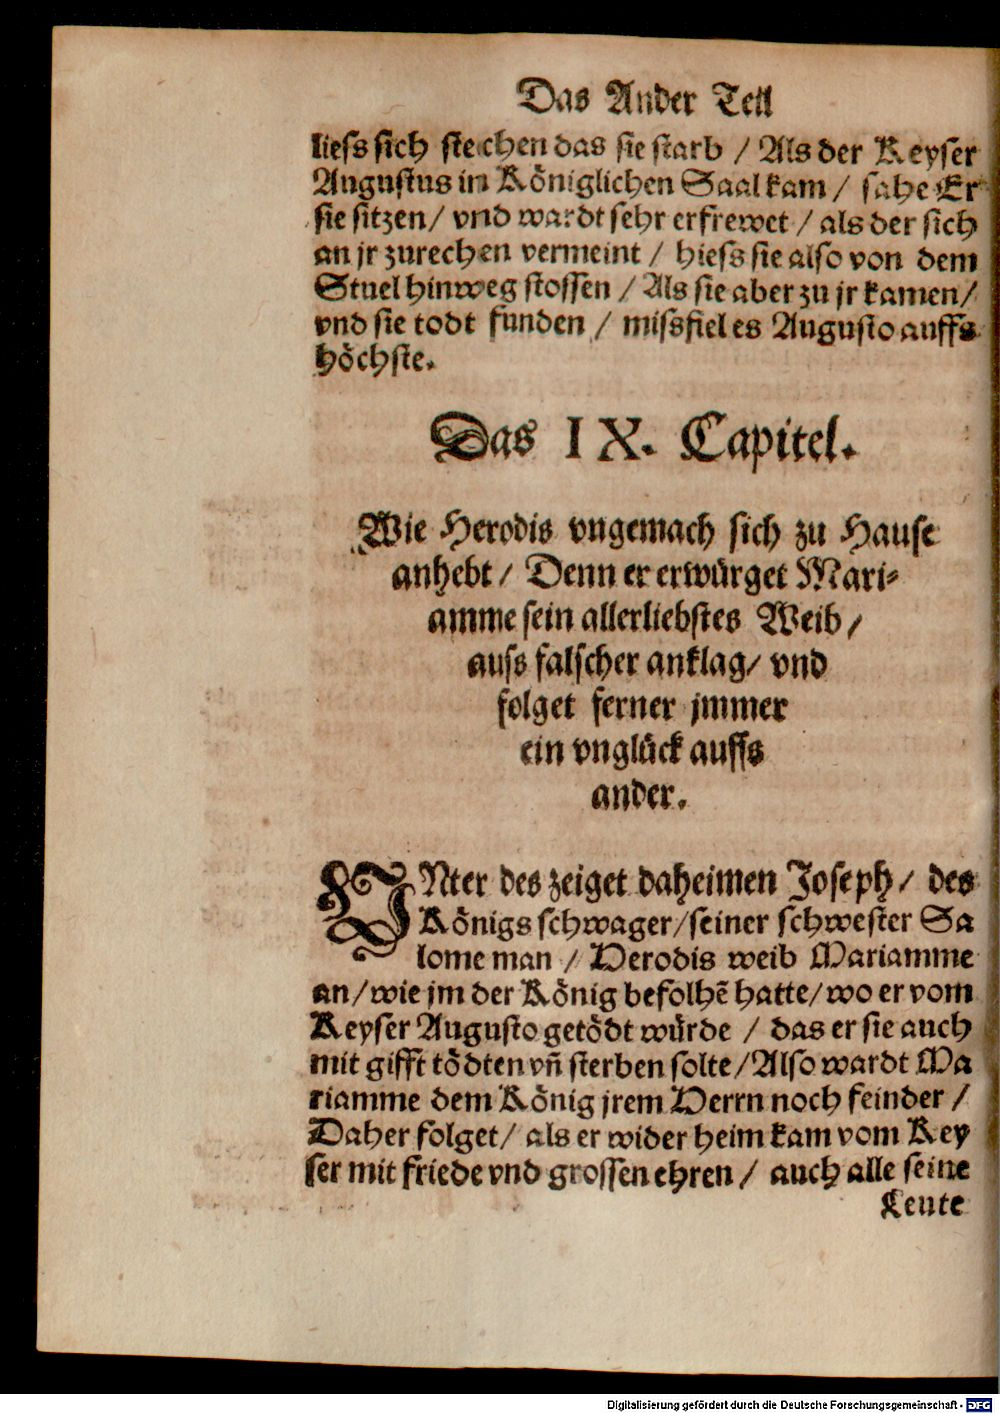 Das Ander Teil
liess sich stechen das sie starb / Als der Keyser
Augustus in Königlichen Saal kam / sahe Er
sie sitzen / vnd wardt sehr erfrewet / als der sich
an jr zurechen vermeint / hiess sie also von dem
Stuel hinweg stossen / Als sie aber zu jr kamen /
vnd sie todt funden / missfiel es Augusto auffs
höchste.
Das IX. Capitel.
Wie Herodis vngemach sich zu Hause
anhebt / Denn er erwürget Mari-
amme sein allerliebstes Weib /
auss falscher anklag / vnd
folget ferner jmmer
ein vnglück auffs
ander.
INter des zeiget daheimen Joseph / des
Königs schwager / seiner schwester Sa
lome man / Herodis weib Mariamme
an / wie jm der König befolhē hatte / wo er vom
Keyser Augusto getödt würde / das er sie auch
mit gifft tödten vñ sterben solte / Also wardt Ma
riamme dem König jrem Herrn noch feinder /
Daher folget / als er wider heim kam vom Key
ser mit friede vnd grossen ehren / auch alle seine
Leute
Digitalisierung gefördert durch die Deutsche Forschungsgemeinschaft - DFG